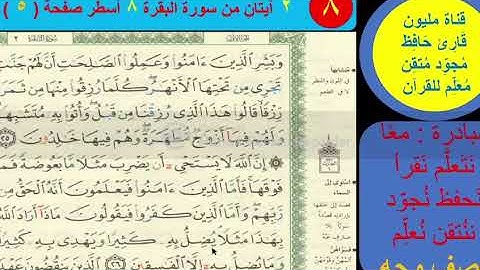 ٢ آيتان من سورة البقرة ٨ أسطر صفحة ( ٥ )
٨
قناة مليون
قارئ حافظ
مُجوّد مُتقِن
مُعلّم للقرآن
وَبَشِّرِ الَّذِينَ ءَامَنُوا وَعَمِلُوا الصَّالِحَاتِ أَنَّ لَهُمْ جَنَّاتٍ
تَجْرِي مِن تَحْتِهَا الْأَنْهَارُ كُلَّمَا رُزِقُوا مِنْهَا مِن ثَمَرَةٍ
رِّزْقًا قَالُوا هَٰذَا الَّذِي رُزِقْنَا مِن قَبْلُ وَأُتُوا بِهِ مُتَشَابِهًا
وَلَهُمْ فِيهَا أَزْوَاجٌ مُّطَهَّرَةٌ وَهُمْ فِيهَا خَالِدُونَ ٢٥
إِنَّ اللَّهَ لَا يَسْتَحْيِي أَن يَضْرِبَ مَثَلًا مَّا بَعُوضَةً فَمَا
فَوْقَهَا فَأَمَّا الَّذِينَ ءَامَنُوا فَيَعْلَمُونَ أَنَّهُ الْحَقُّ مِن
رَّبِّهِمْ وَأَمَّا الَّذِينَ كَفَرُوا فَيَقُولُونَ مَاذَا أَرَادَ اللَّهُ
بِهَٰذَا مَثَلًا يُضِلُّ بِهِ كَثِيرًا وَيَهْدِي بِهِ كَثِيرًا
وَمَا يُضِلُّ بِهِ إِلَّا الْفَاسِقِينَ ٢٦ الَّذِينَ يَنقُضُونَ عَهْدَ
متشابها
استوى إلى
السماء
مبادرة : معًا
نتعلّم نقرأ
نحفظ نُجوّد
نُتقن نُعلّم